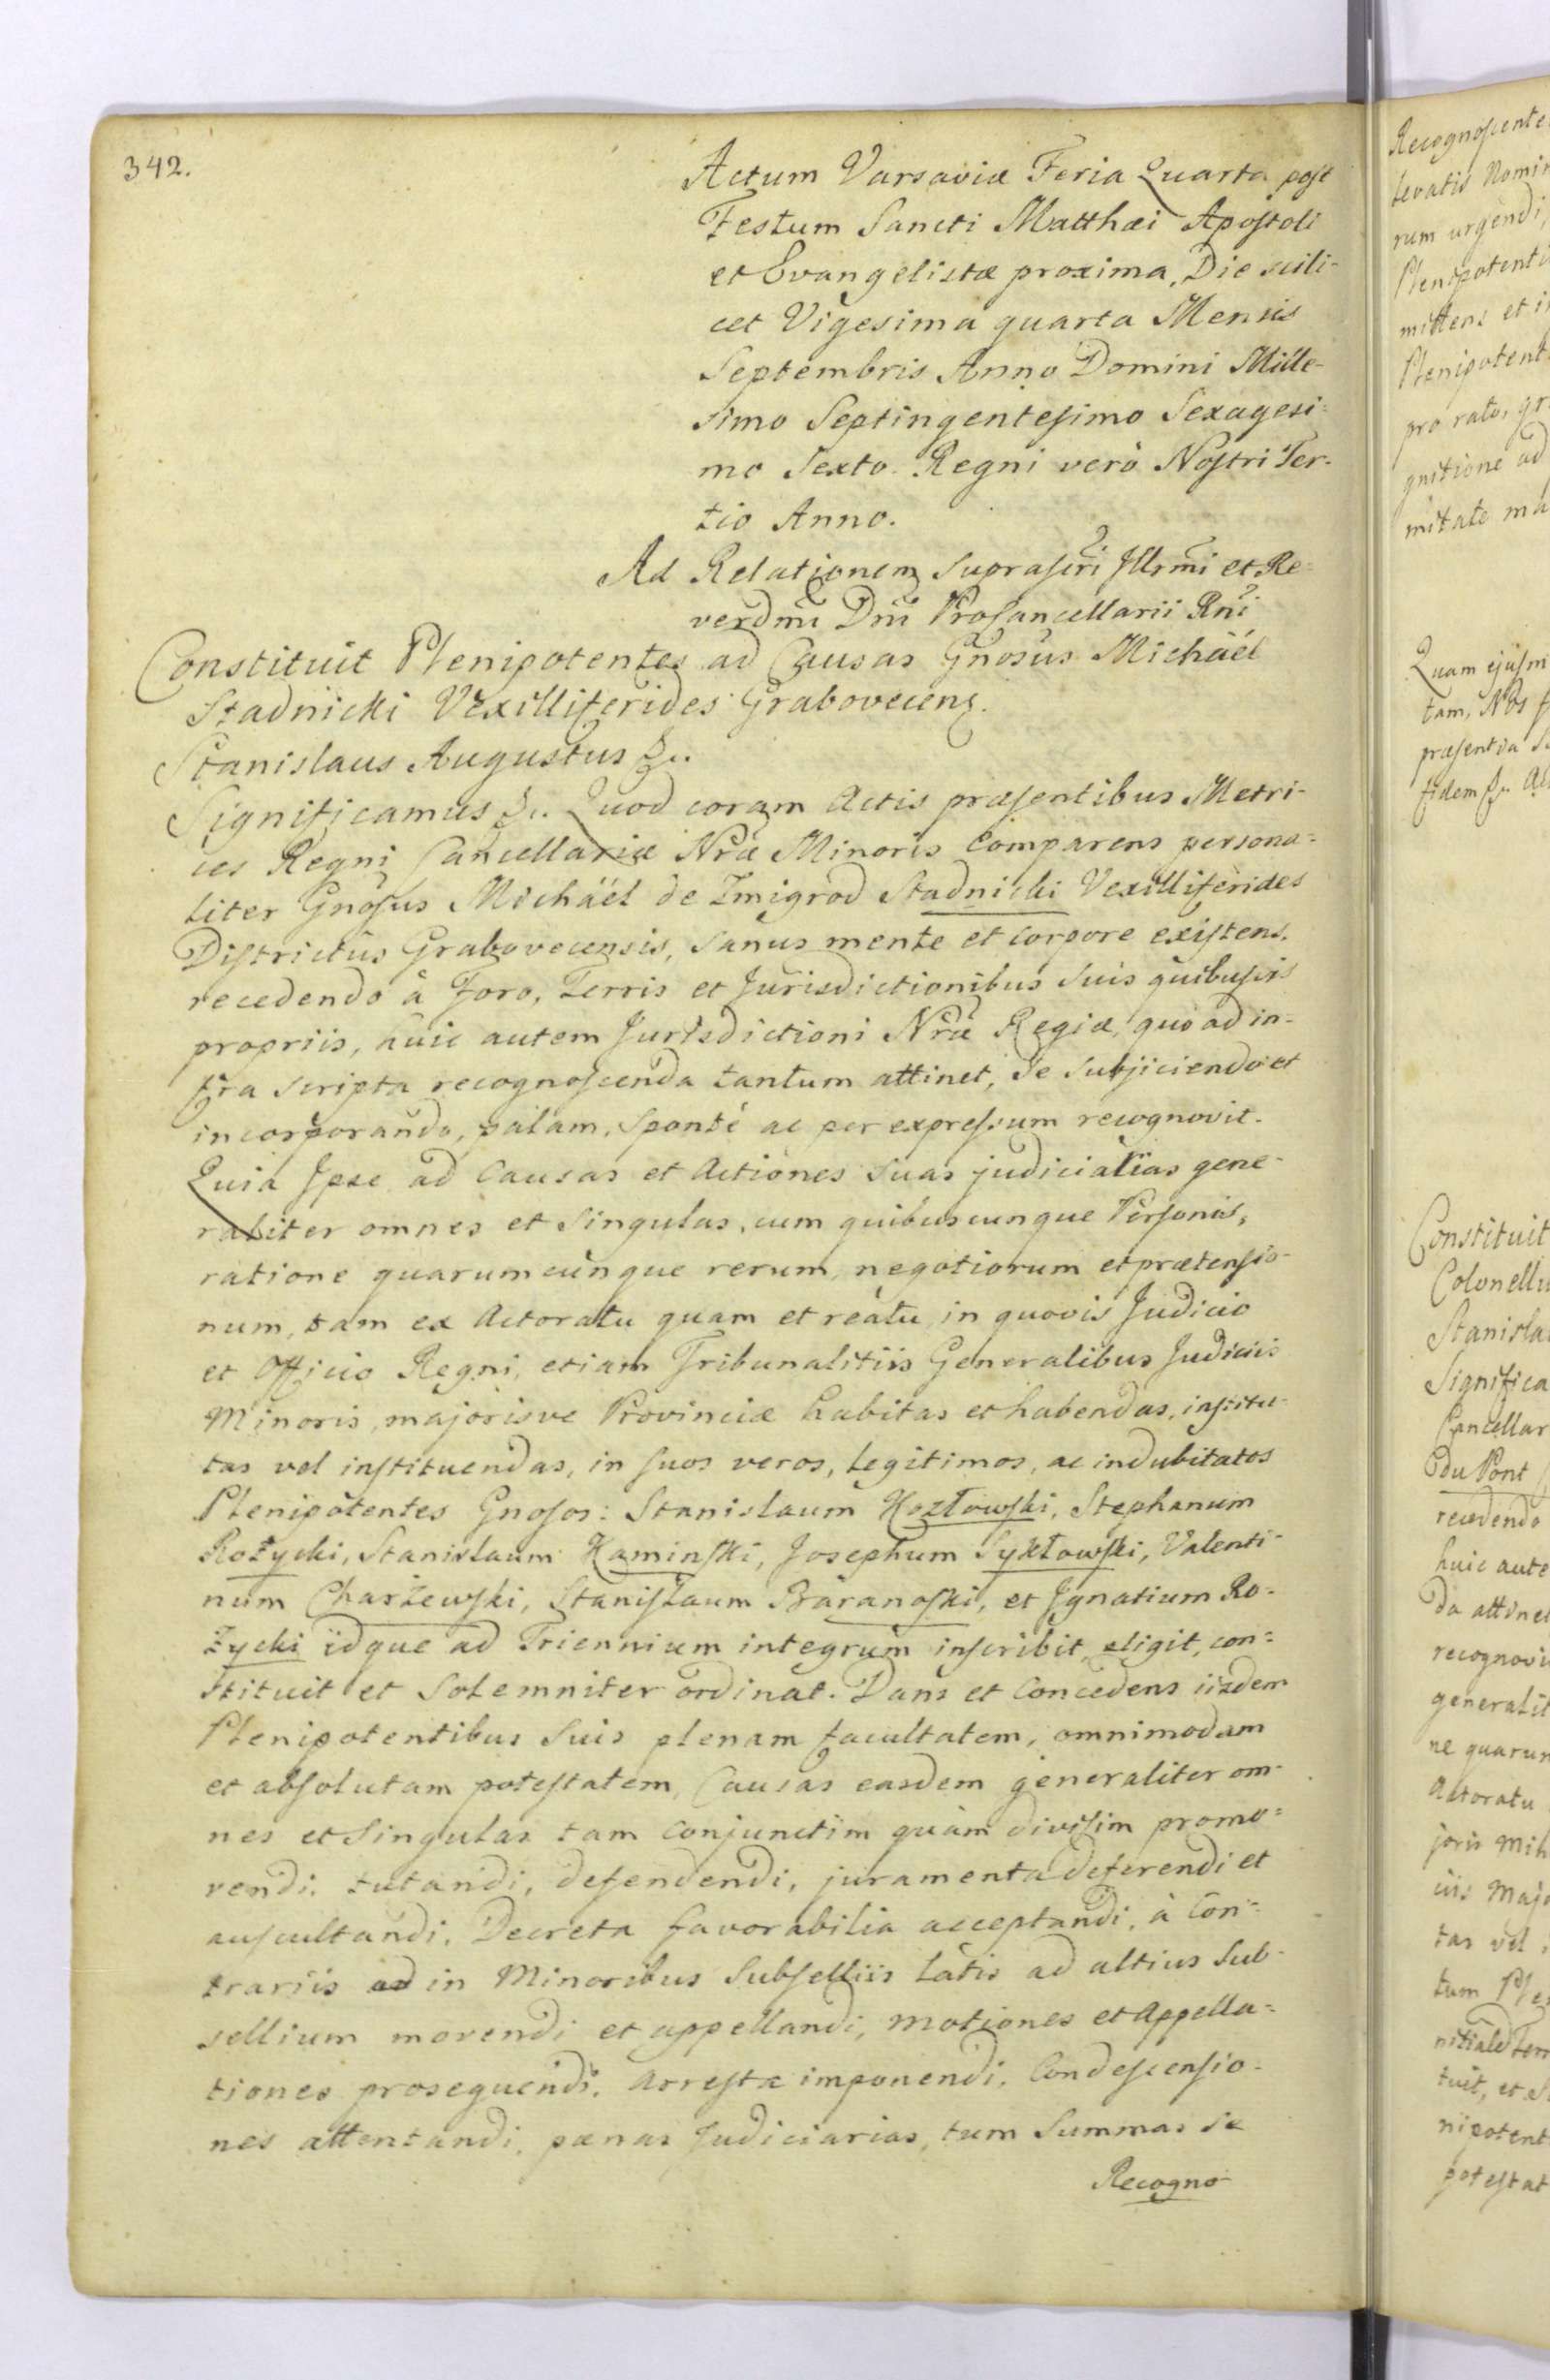 342.
Actum Varsaviæ Feria Quarta post
Festum Sancti Matthæi Apostoli
et Evangelistæ proxima, Die scili-
cet Vigesima quarta Mensis
Septembris Anno Domini Mille-
simo Septingentesimo Sexagesi-
mo Sexto Regni verò Nostri Ter-
tio Anno.
Ad Relationem suprascri Illrmi et Re-
verdmi Dni ProCancellarii Rni
Constituit Plenipotentes ad Causas Gnosus Michäel
Stadnicki Vexilliferides Grabovecens.
Stanislaus Augustus &c.
Significamus &c. Quod coram Actis præsentibus Metri-
ces Regni Cancellariæ Nræ Minoris Comparens persona-
liter Gnosus Michäel de Zmigrod Stadnicki Vexilliferides
Districtûs Grabovecensis, Sanus mente et Corpore existens,
recedendo à Foro, Terris et Jurisdictionibus Suis quibusvis
propriis, huic autem Jurisdictioni Nræ Regiæ, quo ad in-
fra scripta recognoscenda tantum attinet, Se Subjiciendo et
incorporando, palam, Spontè ac per expressum recognovit.
Quia Ipse ad Causas et Actiones Suas judicialias gene-
raliter omnes et Singulas, cum quibuscunque Personis,
ratione quarumcunque rerum, negotiorum et prætensio-
num, tam ex Actoratu quam et reatu, in quovis Judicio
et Officio Regni, etiam Tribunalitiis Generalibus Judiciis
Minoris, majorisve Provinciæ habitas et habendas, institu-
tas vel instituendas, in suos veros, legitimos, ac indubitatos
Plenipotentes Gnosos: Stanislaum Kozłowski, Stephanum
Rożycki, Stanislaum Kaminski, Josephum Sykłowski, Valenti-
num Charżewski, Stanislaum Baranoski, et Ignatium Ro-
życki idque ad Triennium integrum inscribit, eligit, con-
stituit et Solemniter ordinat. Dans et Concedens iisdem
Plenipotentibus Suis plenam facultatem, omnimodam
et absolutam potestatem, Causas easdem generaliter om-
nes et Singulas tam Conjunctim quàm divisim promo-
vendi, tutandi, defendendi, juramenta deferendi et
auscultandi, Decreta favorabilia acceptandi, à Con-
trariis ad in Minoribus Subselliis latis ad altius Sub-
sellium movendi et appellandi, motiones et Appella-
tiones prosequendi, Arresta imponendi, Condescensio-
nes attentandi, pænas Judiciarias, tum Summas se
Recogno-
Recognoscente
levatis Nomin
rum urgendi,
Plenipotenti
mittens et i
Plenipotent
pro rato, gr
gnitione ad
mitate ma
Quam ejusm
tam, Nos
præsentia S
fidem &c. Ac
Constituit
Colonellu
Stanisla
Significa
Cancellar
du Pont
recedendo
huic aute
da attinet
recognovi
generalit
ne quarun
Actoratu
joris Min
ciis Majo
tas vel
tum Ple
tuit, et S
nipotent
potestat